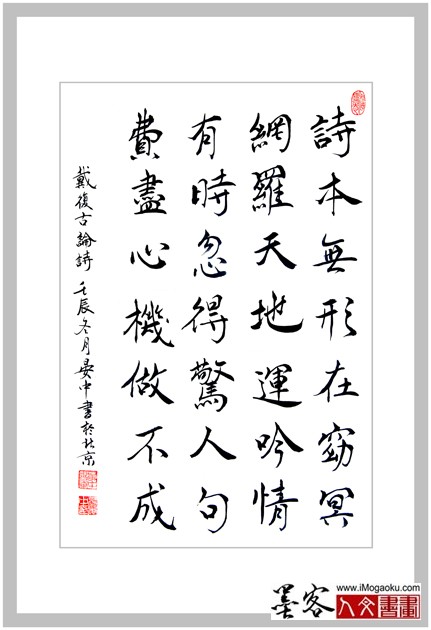 詩本無形在窈冥
網羅天地運吟情
有時忽得驚人句
費盡心機做不成
戴復古論詩 壬辰冬月晏中書於北京
墨客
www.iMogaoku.com
人文書畫